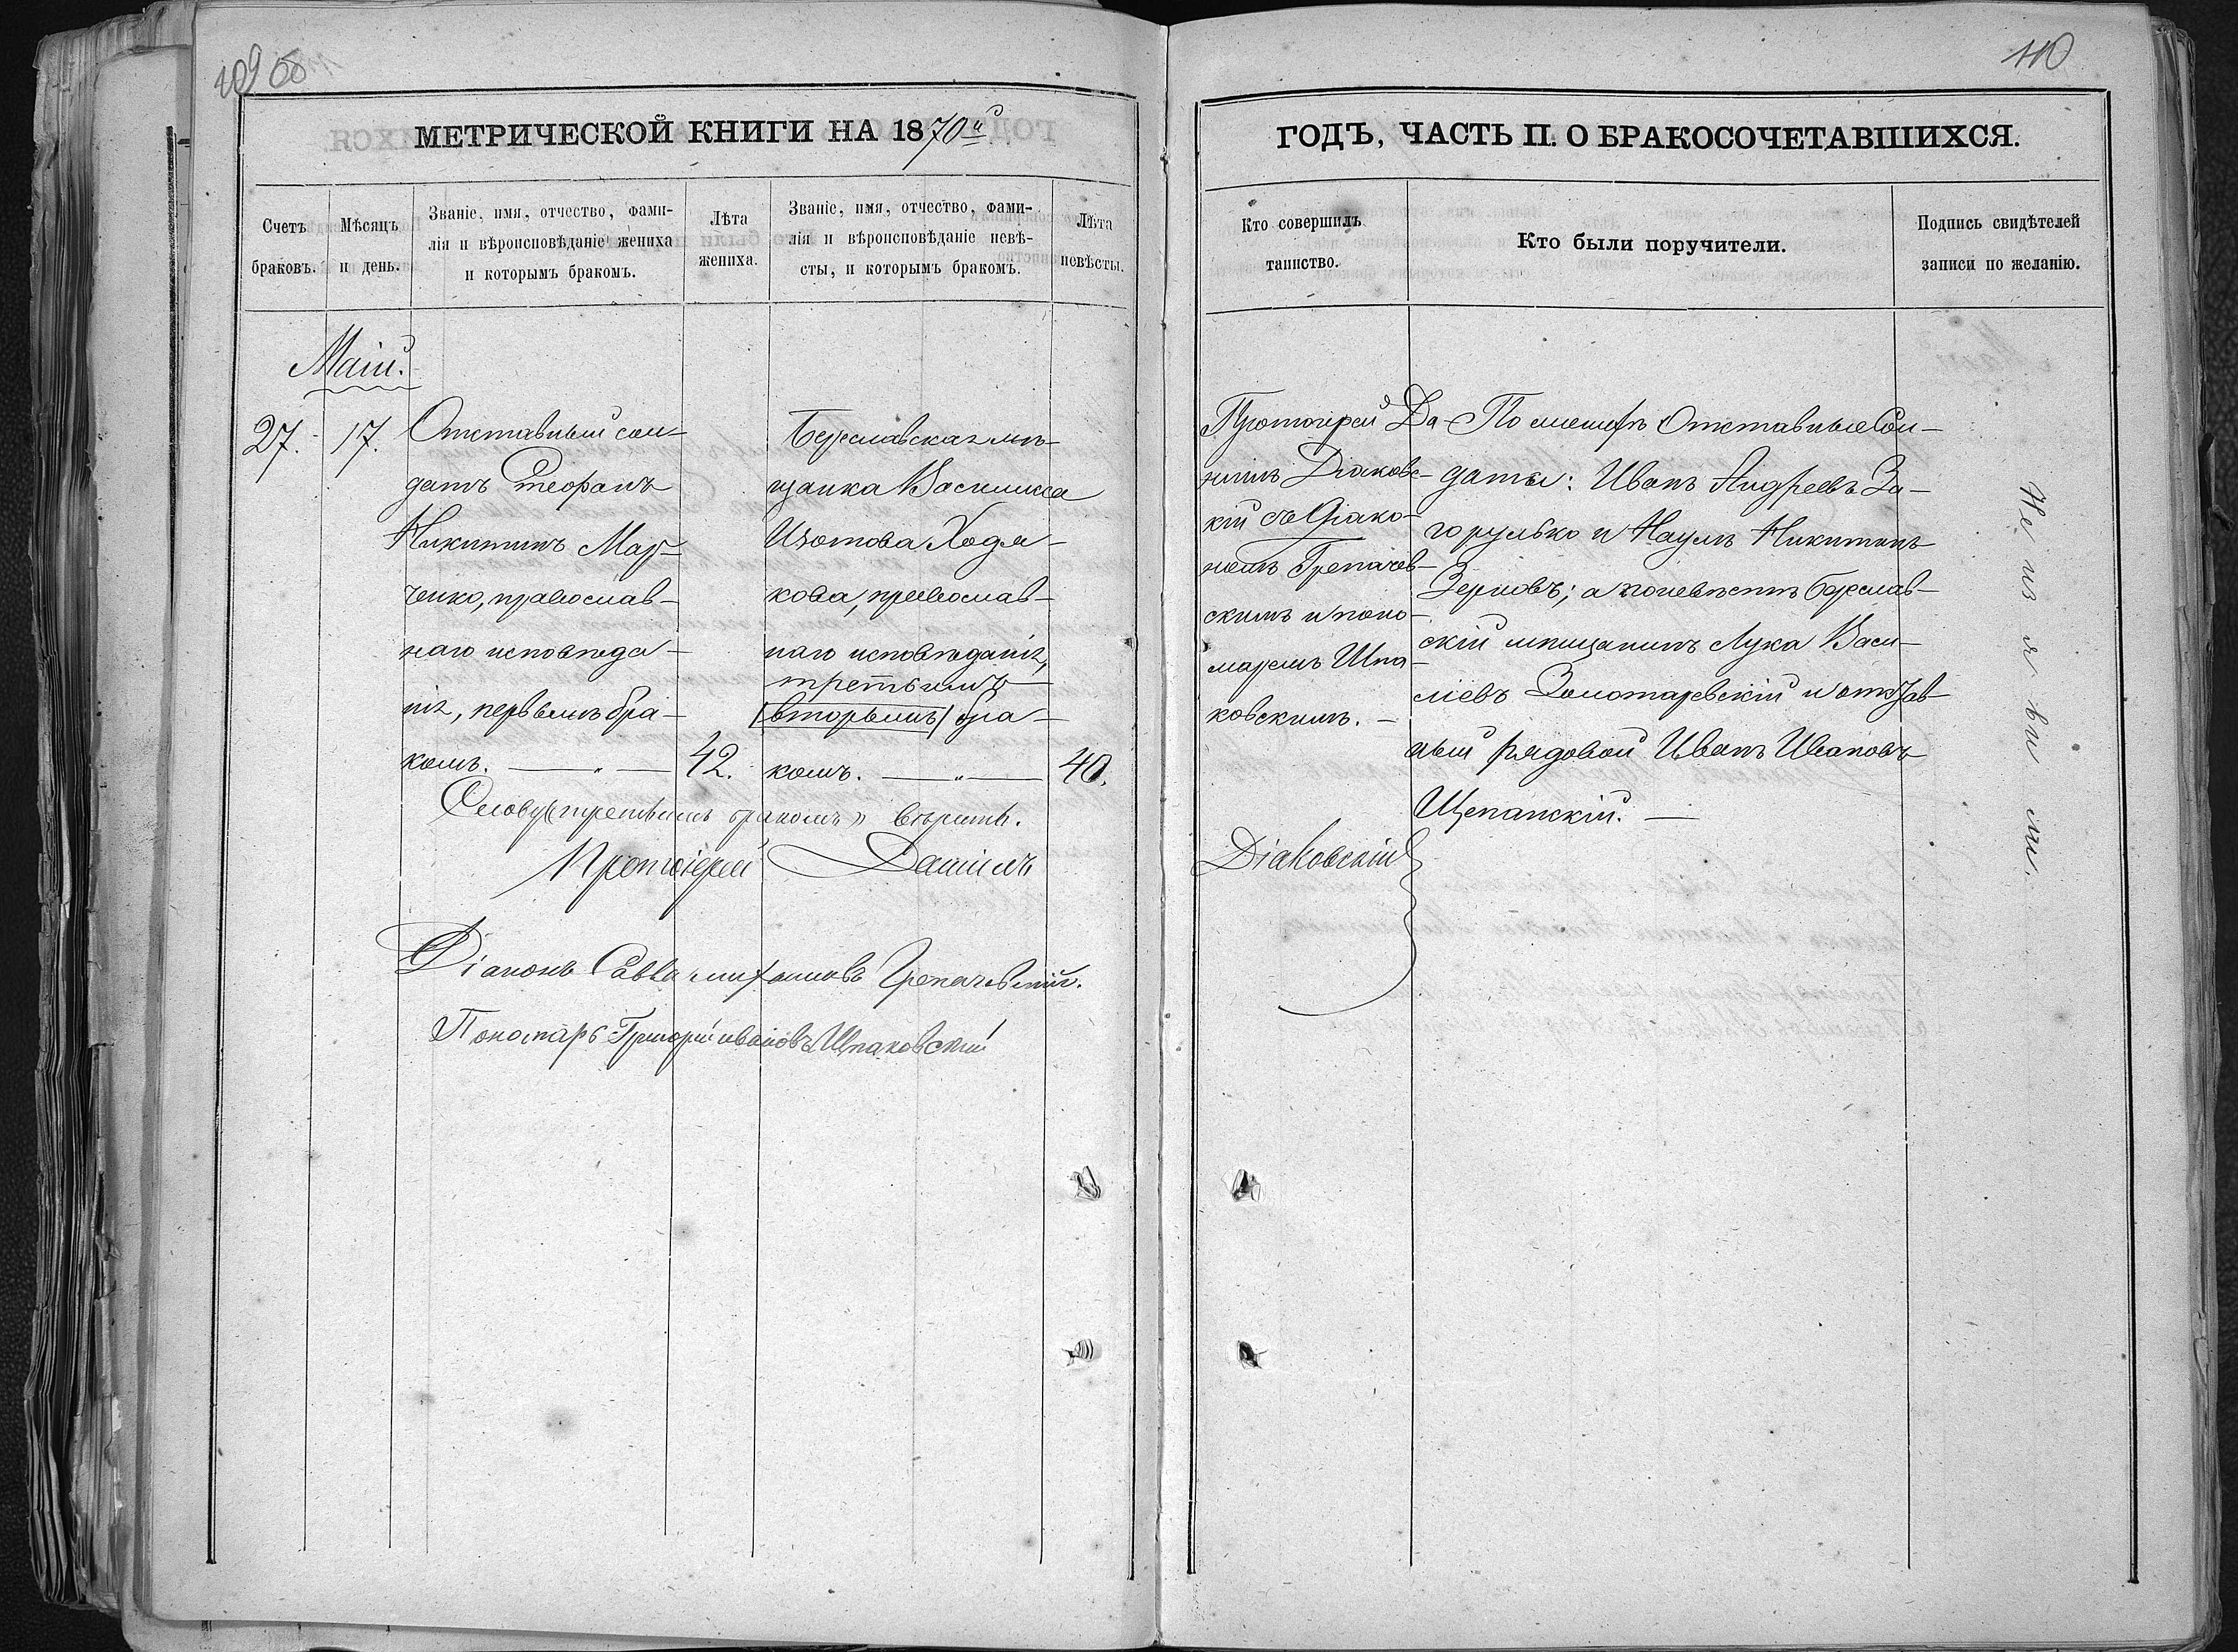 109
110
МЕТРИЧЕСКОЙ КНИГИ НА 1870й
Счетъ браковъ.
Мѣсяцъ и день.
Званіе, имя, отчество, фами-
лія и вѣроисповѣданіе жениха
и которымъ бракомъ.
Лѣта
жениха.
Званіе, имя, отчество, фами-
лія и вѣроисповѣданіе невѣ-
сты, и которымъ бракомъ.
Лѣта
невѣсты.
Маій.
27.
17.
Отставный сол-
датъ Ѳеофанъ
Никитинъ Мар-
ченко, православ-
наго исповѣда-
нія, первымъ бра-
комъ. — „ —
42.
Береславская мѣ-
щанка Василиса
Изотова Ходя-
кова, православ-
наго исповѣданія,
третьимъ
(вторымъ) бра-
комъ. — „ —
40.
Слову „третьимъ бракомъ" вѣрить.
Протоіерей Даніилъ
Діаконъ Савва Грепачевскій.
Пономарь Григорій Ивановъ Шпаковскій
ГОДЪ, ЧАСТЬ II. О БРАКОСОЧЕТАВШИХСЯ.
Кто совершилъ
таинство.
Кто были поручители.
Подпись свидѣтелей
записи по желанію.
Протоіерей Да-
ніилъ Діаковс-
кій съ Діако-
номъ Грепачев-
скимъ и поно-
маремъ Шпа-
ковскимъ. —
Діаковскій
По женихѣ Отставные Сол-
даты: Иванъ Андреевъ За-
горулько и Наумъ Никитинъ
Зерновъ; а по невѣстѣ Береслав-
скій мѣщанинъ Лука Васи-
ліевъ Золотаревскій и отстав-
ный рядовой Иванъ Ивановъ
Щепанскій. —
Не изъявили.